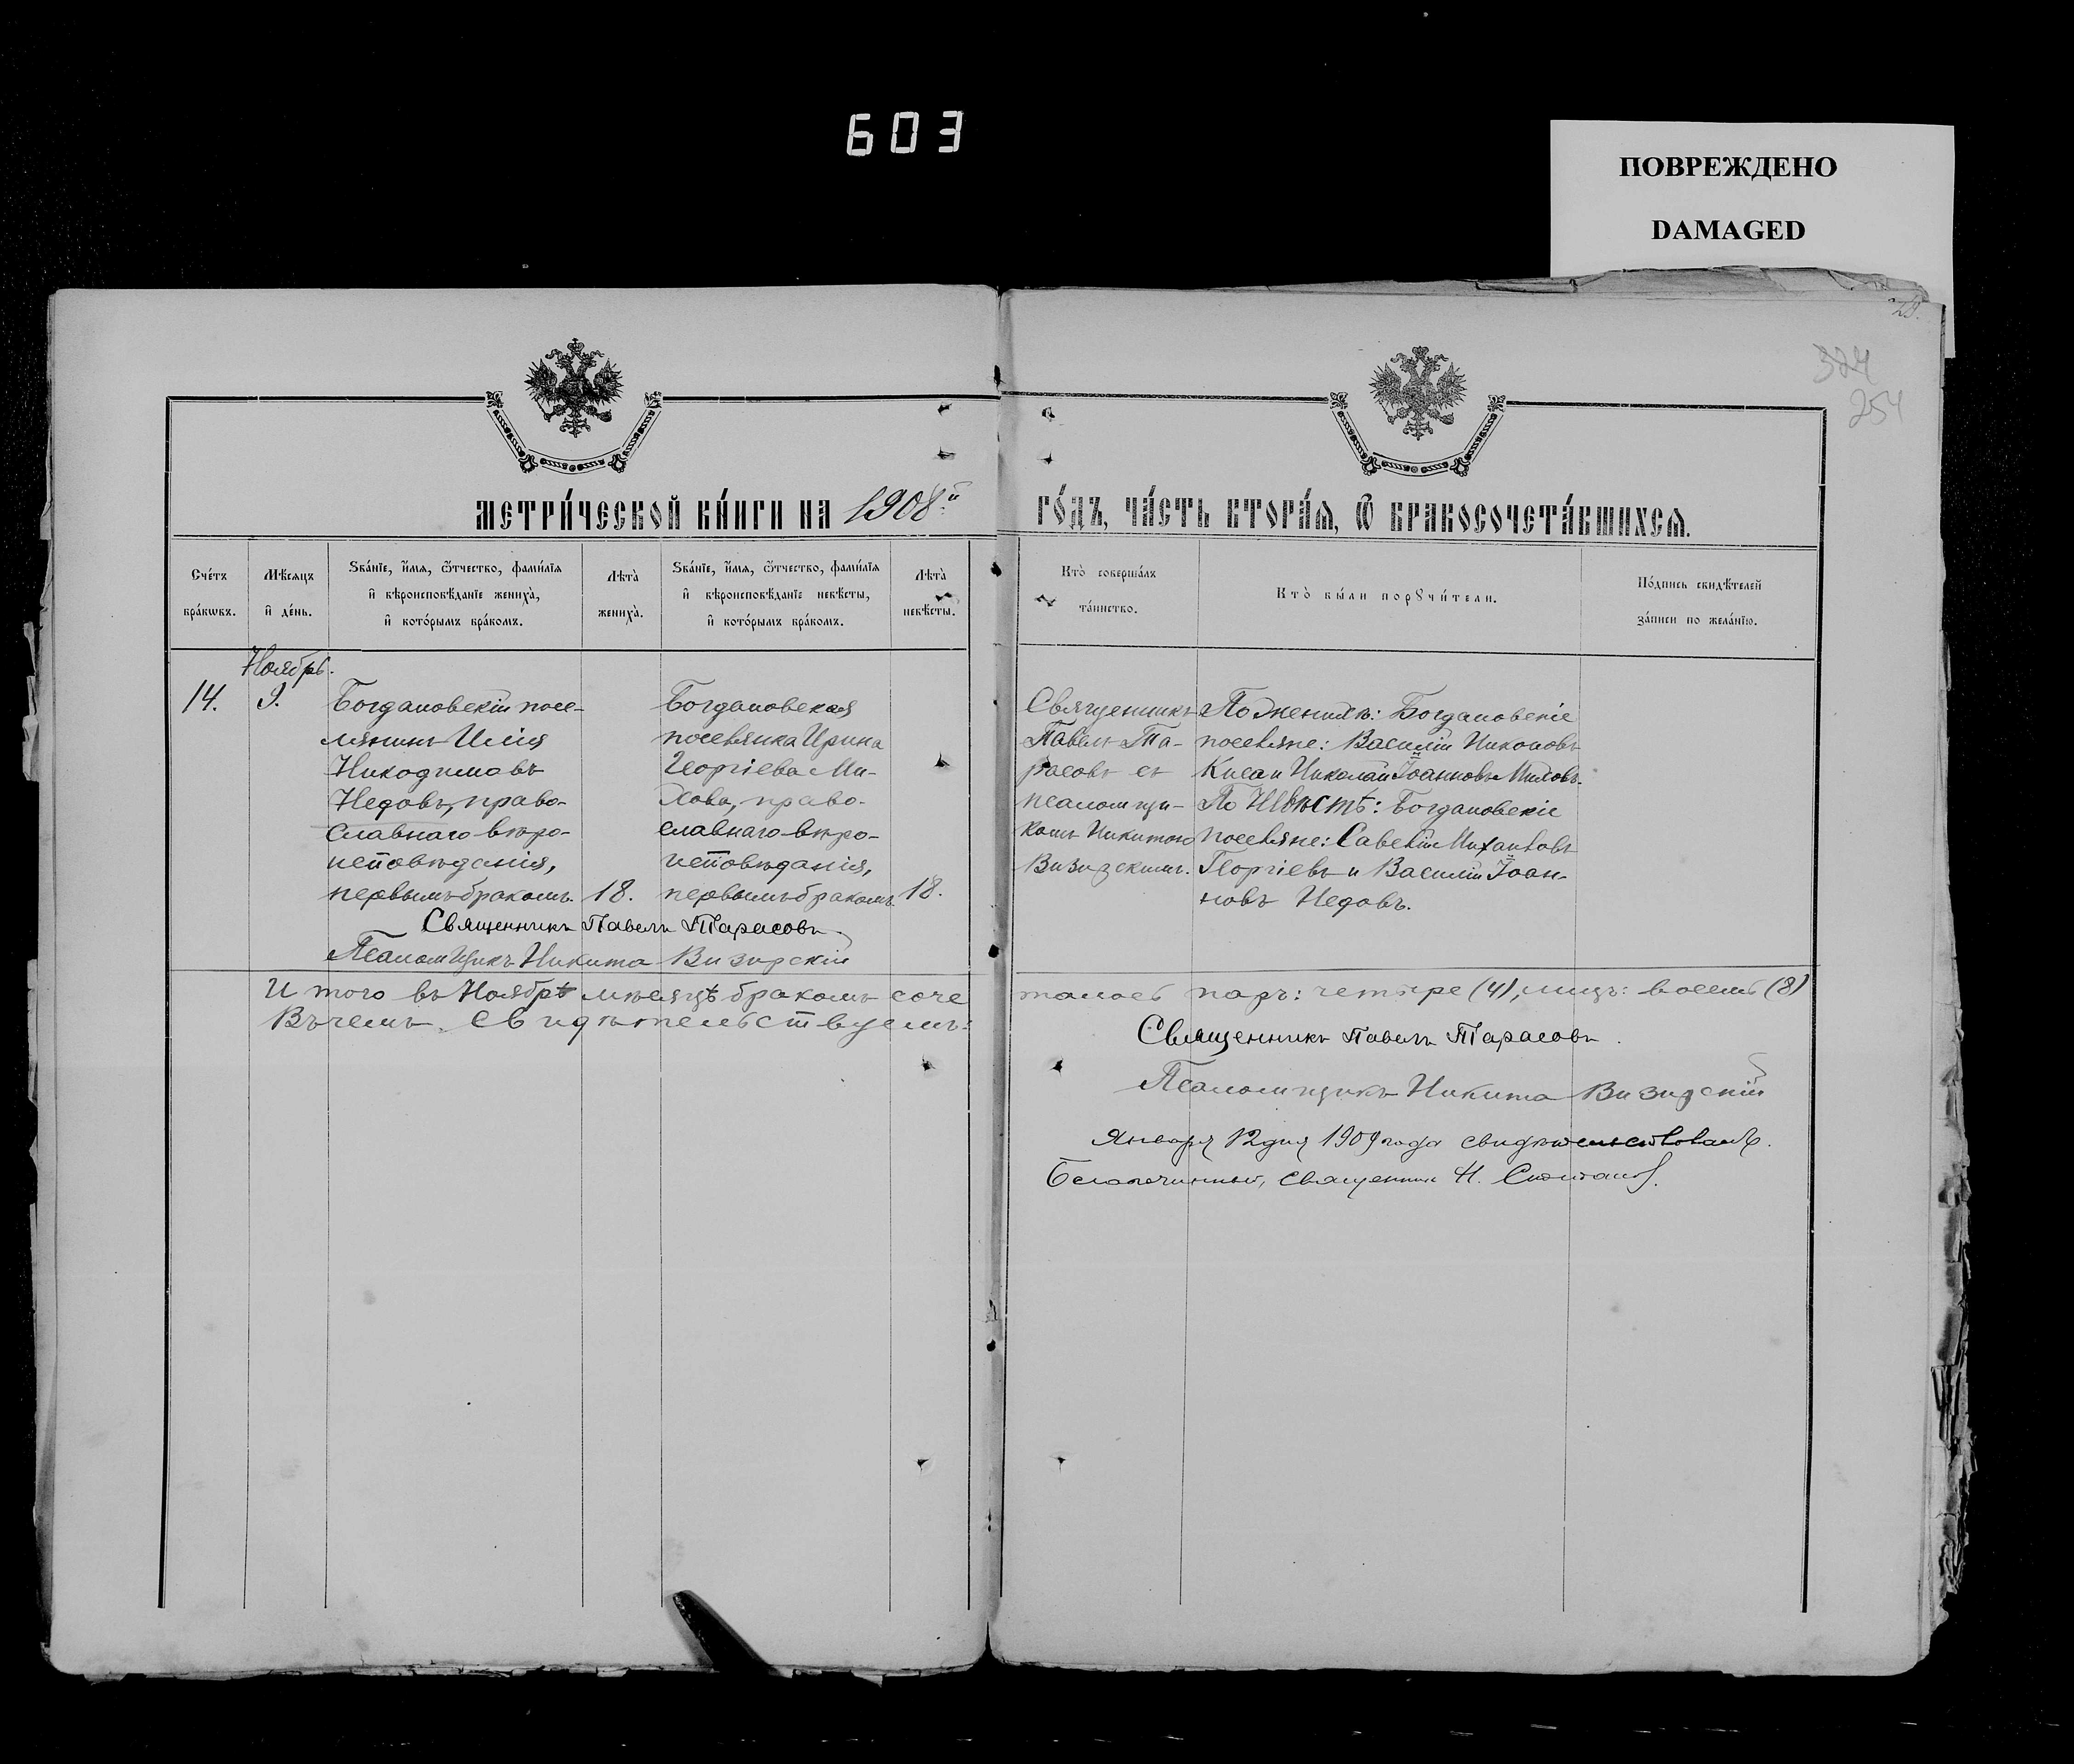 603
ПОВРЕЖДЕНО
DAMAGED
28.
324
254
МЕТРИ́ЧЕСКОЙ КНИ́ГИ НА 1908й
ГО́ДЪ, ЧА́СТЬ ВТОРА́Ѧ, Ѿ БРАКОСОЧЕТА́ВШИХСѦ.
Сче́тъ бра́кѡвъ.
Мѣ́сяцъ и҆ де́нь.
Ѕва́нїе, и҆́мѧ, ѻ҆́тчество, фами́лїѧ
и҆ вѣроисповѣ́данїе жениха̀,
и҆ кото́рымъ бра́комъ.
Лѣ́та жениха̀.
Ѕва́нїе, и҆́мѧ, ѻ҆́тчество, фами́лїѧ
и҆ вѣроисповѣ́данїе невѣ́сты,
и҆ кото́рымъ бра́комъ.
Лѣ́та невѣ́сты.
Кто̀ соверша́лъ
та́инство.
Кто̀ бы́ли порꙋчи́тели.
По́дпись свидѣ́телей
за́писи по жела́нїю.
Ноябрь.
14.
9.
Богдановскій посе-
лянинъ Илія
Никодимовъ
Недовъ, право-
славнаго вѣро-
исповѣданія,
первымъ бракомъ.
18.
Богдановская
поселянка Ирина
Георгіева Ми-
хова, право-
славнаго вѣро-
исповѣданія,
первымъ бракомъ
18.
Священникъ
Павелъ Та-
расовъ съ
псаломщи-
комъ Никитою
Визирскимъ.
По женихѣ: Богдановскіе
поселяне: Василій Никоновъ
Киса и Николай Іоанновъ Миховъ.
По невѣстѣ: Богдановскіе
поселяне: Савелій Михаиловъ
Георгіевъ и Василій Іоан-
новъ Недовъ.
Священникъ Павелъ Тарасовъ.
Псаломщикъ Никита Визирскій
Итого въ Ноябрѣ мѣсяцѣ бракомъ соче
талось паръ: четыре (4), лицъ: восемь (8)
Въ чемъ свидѣтельствуемъ:
Священникъ Павелъ Тарасовъ.
Псаломщикъ Никита Визирскій
Января 12 дня 1909 года свидѣтельствовалъ.
Благочинный, священник Н.